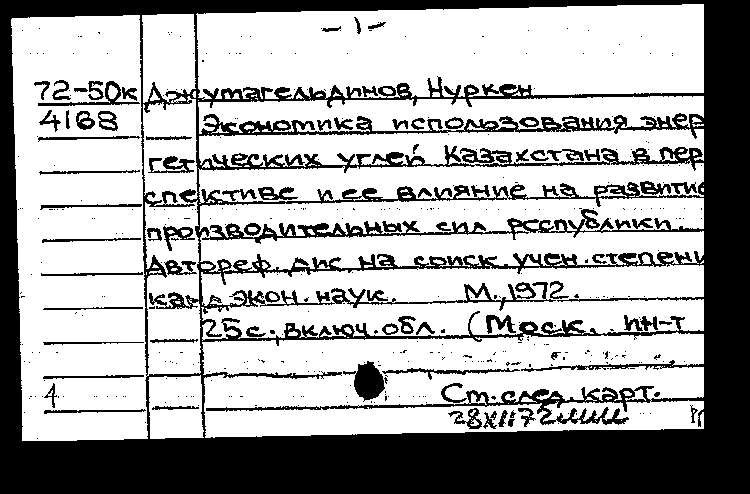 -1-
72-50к Джумагельдинов, Нуркен
4168 Экономика использования энер
гетических углей Казахстана в пер
спективе и ее влияние на развитие
производительных сил республики.
Автореф. дис на соиск. учен. степени
канд. экон. наук. М., 1972.
25с., включ. обл. (Моск. ин-т
4 Ст. след. карт.
28XII72